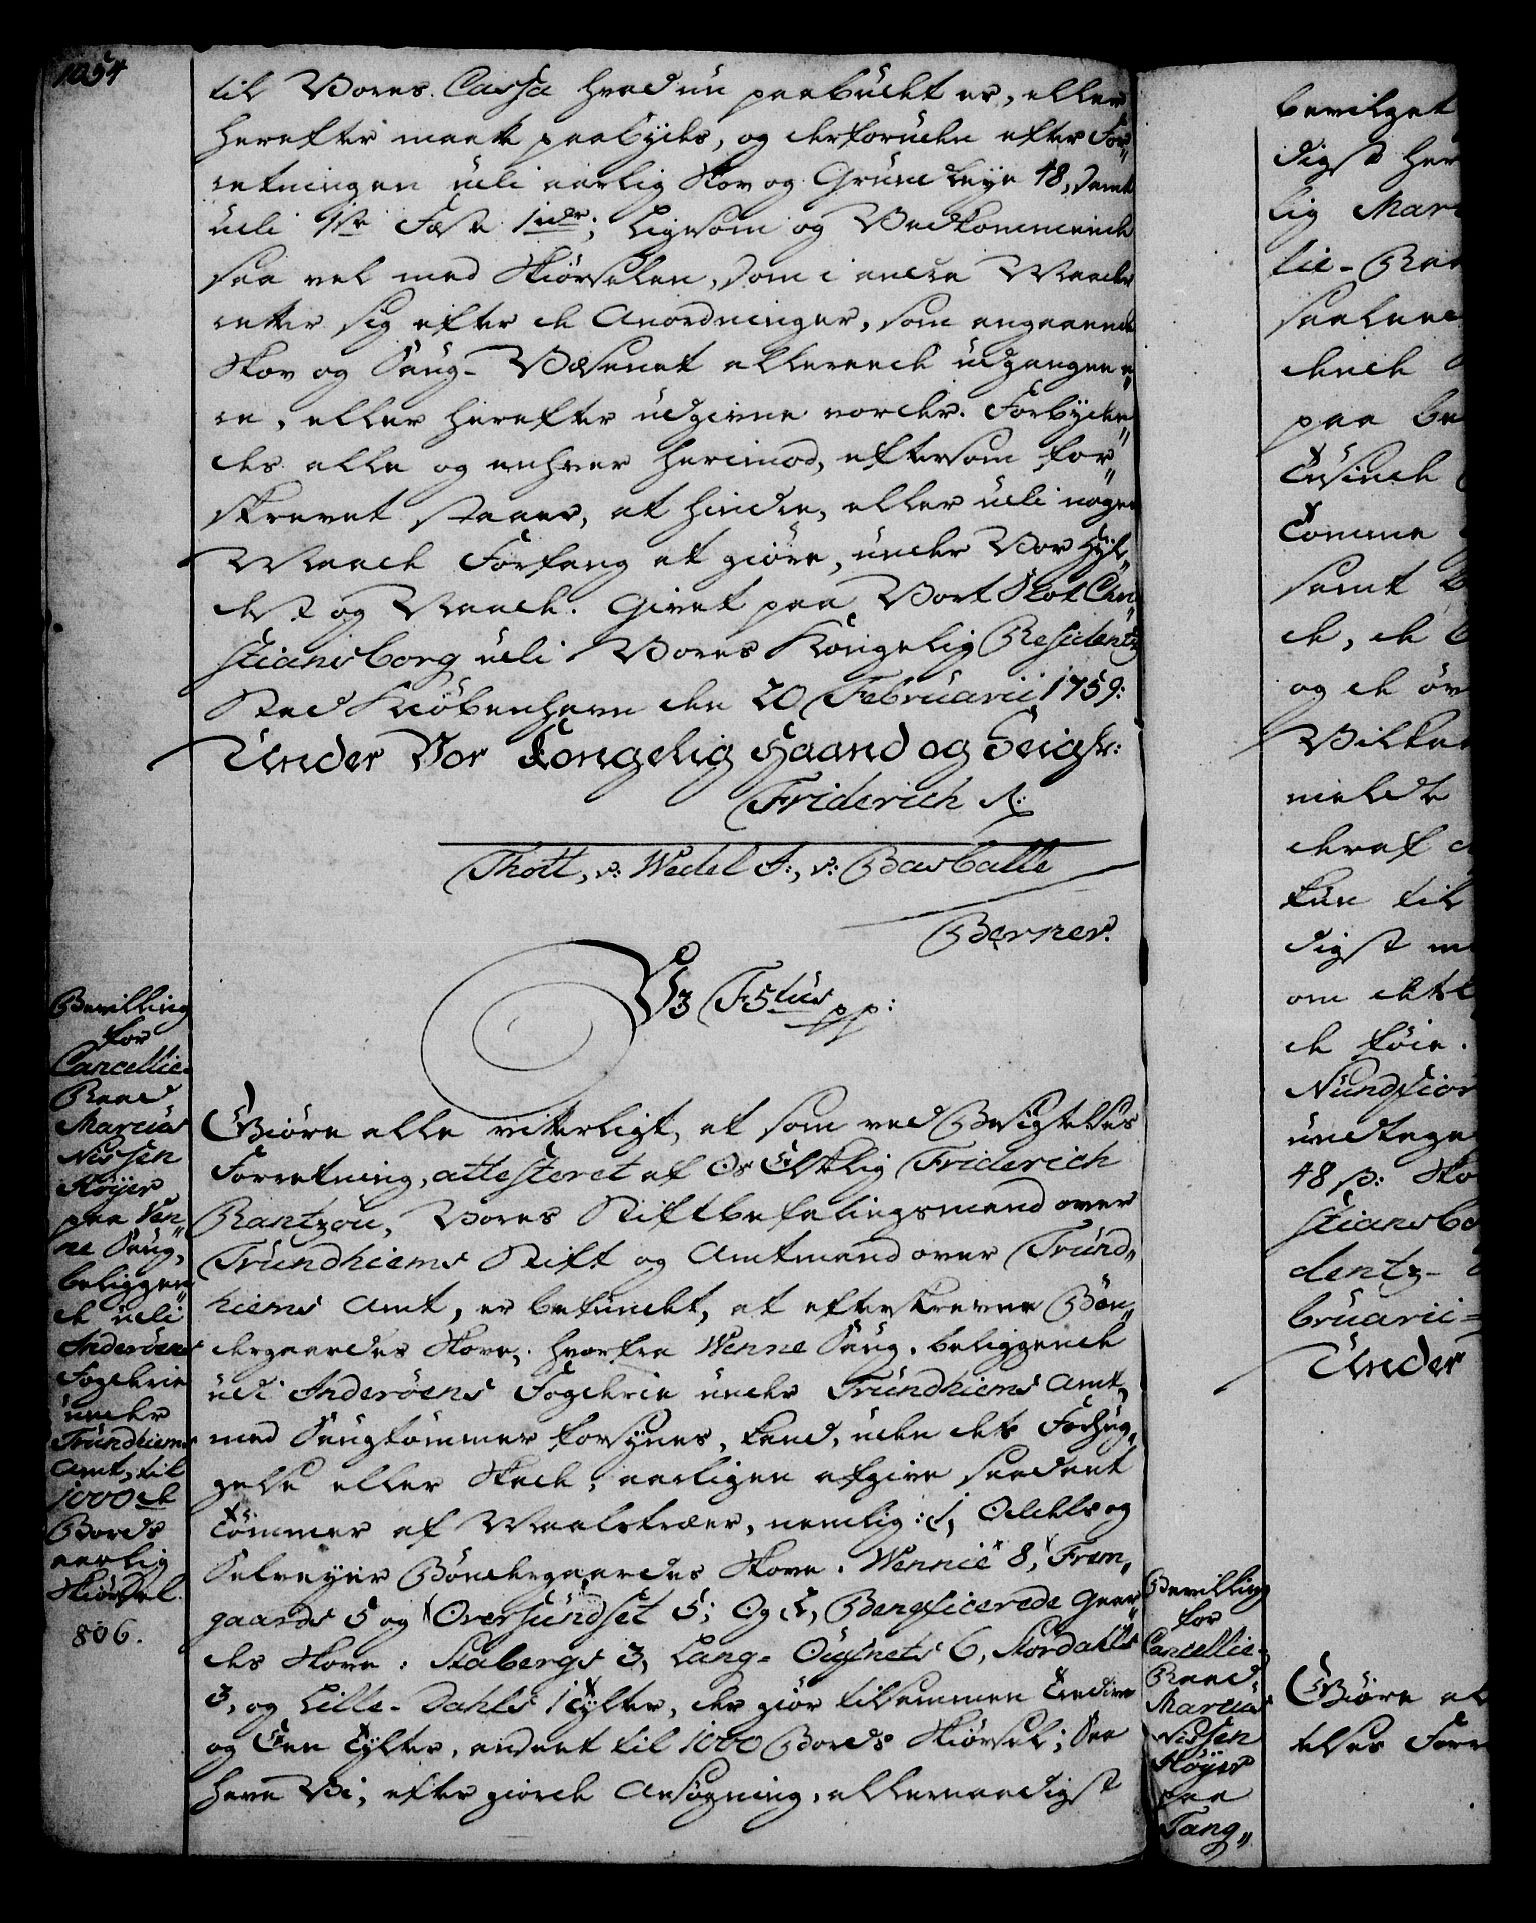 1054
til Vores Cassa hvad nu paabudt er, eller
herefter maatte paabydes, og derforuden efter For„
retningen udi aarlig Skov og Grund Leye 48, samt
udi 1te Fæste 1 rdr; Ligesom og Vedkommende
saa vel med Skiørselen, som i andre Maader
retter sig efter de Anordninger, som angaaende
Skov og Saug-Væsenet allerede udgangne e„
re, eller herefter udgivne vorder. Forbyden„
des alle og enhver herimod, eftersom for„
skrevet staaer, at hindre, eller udi nogen
Maade Forfang at giøre, under Vor Hyl„
dest og Naade. Givet paa Vort Slot Chri„
stiansborg udi Vores Kongelig Residentz
Stad Kiøbenhavn den 20 Februarii 1759:
Under Vor Kongelig Haand og Seigl:
Friderich R:
Thott, v: Wedel F:, v: Barballe
Berner.
V3 F5tus pp:
Bevilling
for
Cancellie-
Raad
Marcus
Nissen
Høyer
paa Ven„
ne Saug,
beliggen„
de udi
Inderøens
Fogderie
under
Trundhiems
Amt, til
1000de
Bords
aarlig
Skiørsel.
806.
Giøre alle vitterligt, at som ved Besigtelses
Forretning, attesteret af Os Elskelig Friderich
Rantzou, Vores Stiftbefalingsmand over
Trundhiems Stift og Amtmand over Trund„
hiems Amt, er befundet, at efterskrevne Bøn„
dergaardes Skove, hvorfra Wenne Saug, beliggende
udi Inderøens Fogderie under Trundhiems Amt,
med Saugtømmer forsynes, kand, uden dets Forhug„
gelse eller Skade, aarligen afgive saadant
Tømmer af Maalstræer, nemlig: 1, Odels og
Selveyer Bøndergaardes Skove: Wennie 8, Frem„
gaards 5 og Oversundset 5; Og 2, Beneficerede Gaar„
des Skove: Stabergs 3, Lang- 6, Stordahls
3, og Lille-Dahls 1 Tylter, der giør tilsammen Tredive
og Een Tylter, ansat til 1000 Bords Skiørsel; Saa
have Vi, efter giorde Ansøgning, allernaadigst
Bevilling
for
Cancellie-
Raad
Marcus
Nissen
Høyer
paa
Tang„
bevilget
digst her
lig Mar
lie-Raa
saaledes
dende
paa be
Tusinde
Tømme
samt
de, de
og de øv
Vilkaa
meldte
deraf
kun til
digst
om dette
de føie.
Nundfior
undtage
48 s: Sko
stiansbo
dentz-
bruarii
Under
Giøre al
telses Forr